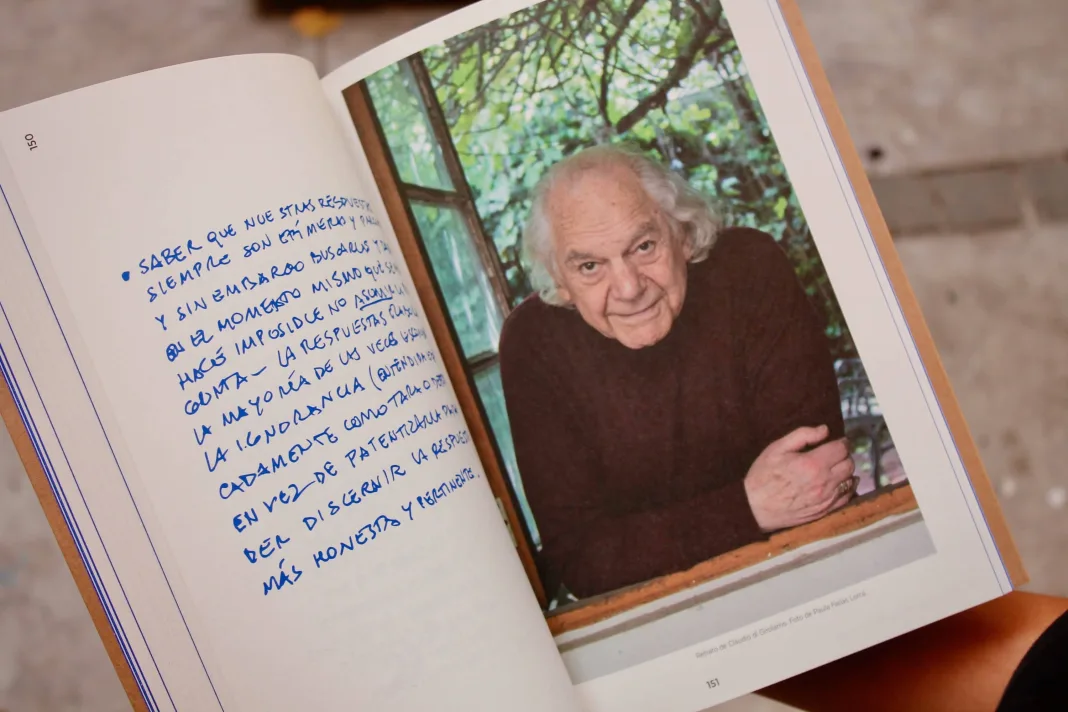 150
• SABER QUE NUESTRAS RESPUESTAS
SIEMPRE SON EFÍMERAS Y
Y SIN EMBARGO BUSCARLAS Y
EN EL MOMENTO MISMO QUE SE
HACE IMPOSIBLE NO
GUNTA – LA RESPUESTAS
LA MAYORÍA DE LAS VECES
LA IGNORANCIA (ENTENDIDA
CADAMENTE COMO TARA O
EN VEZ DE PATENTIZARLA PARA
DER DISCERNIR LA RESPUESTA
MÁS HONESTA Y PERTINENTE.
Retrato de Claudio di Girolamo. Foto de Paula
151